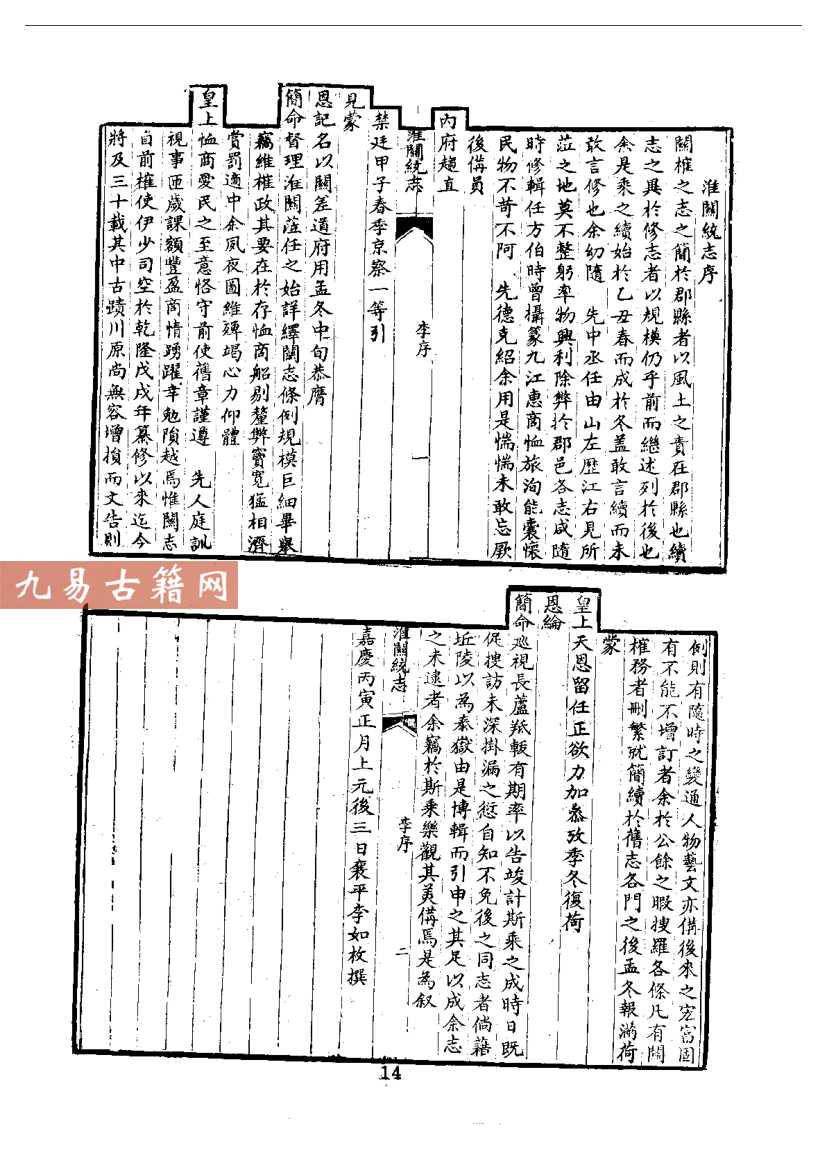 淮關統志序
關榷之志之簡於郡縣者以風土之責在郡縣也續
志之異於修志者以規模仍乎前而繼述列於後也
余是乘之續始於乙丑春而成於冬蓋敢言續而未
敢言修也余幼隨 先中丞任由山左歷江右見所
蒞之地莫不整躬率物興利除弊於郡邑各志咸隨
時修輯任方伯時曾攝篆九江惠商恤旅洵能囊懷
民物不苛不阿 先德克紹余用是惴惴未敢忘厥
後備員
內府趨直
淮關統志
李序
一
禁廷甲子春季京察一等引
見蒙
恩記名以關差道府用孟冬中旬恭膺
簡命督理淮關蒞任之始詳繹關志條例規模巨細畢舉
竊維榷政其要在於存恤商船剔釐弊竇寬猛相濟
賞罰適中余夙夜圖維殫竭心力仰體
皇上恤商愛民之至意恪守前使舊章謹遵 先人庭訓
視事匝歲課額豐盈商情踴躍幸勉隕越焉惟關志
自前榷使伊少司空於乾隆戊戌年纂修以來迄今
將及三十載其中古蹟川原尚無容增損而文告則
九易古籍网
例則有隨時之變通人物藝文亦備後來之宏富固
有不能不增訂者余於公餘之暇搜羅各條凡有關
榷務者刪繁就簡續於舊志各門之後孟冬報滿荷
蒙
皇上天恩留任正欲力加叅攷季冬復荷
恩綸
簡命巡視長蘆羝輙有期率以告竣計斯乘之成時日既
促搜訪未深掛漏之愆自知不免後之同志者倘藉
坵陵以為泰嶽由是博輯而引申之其足以成余志
之未逮者余竊於斯乘樂觀其美備焉是為叙
淮關統志
李序
二
嘉慶丙寅正月上元後三日襄平李如枚撰
14